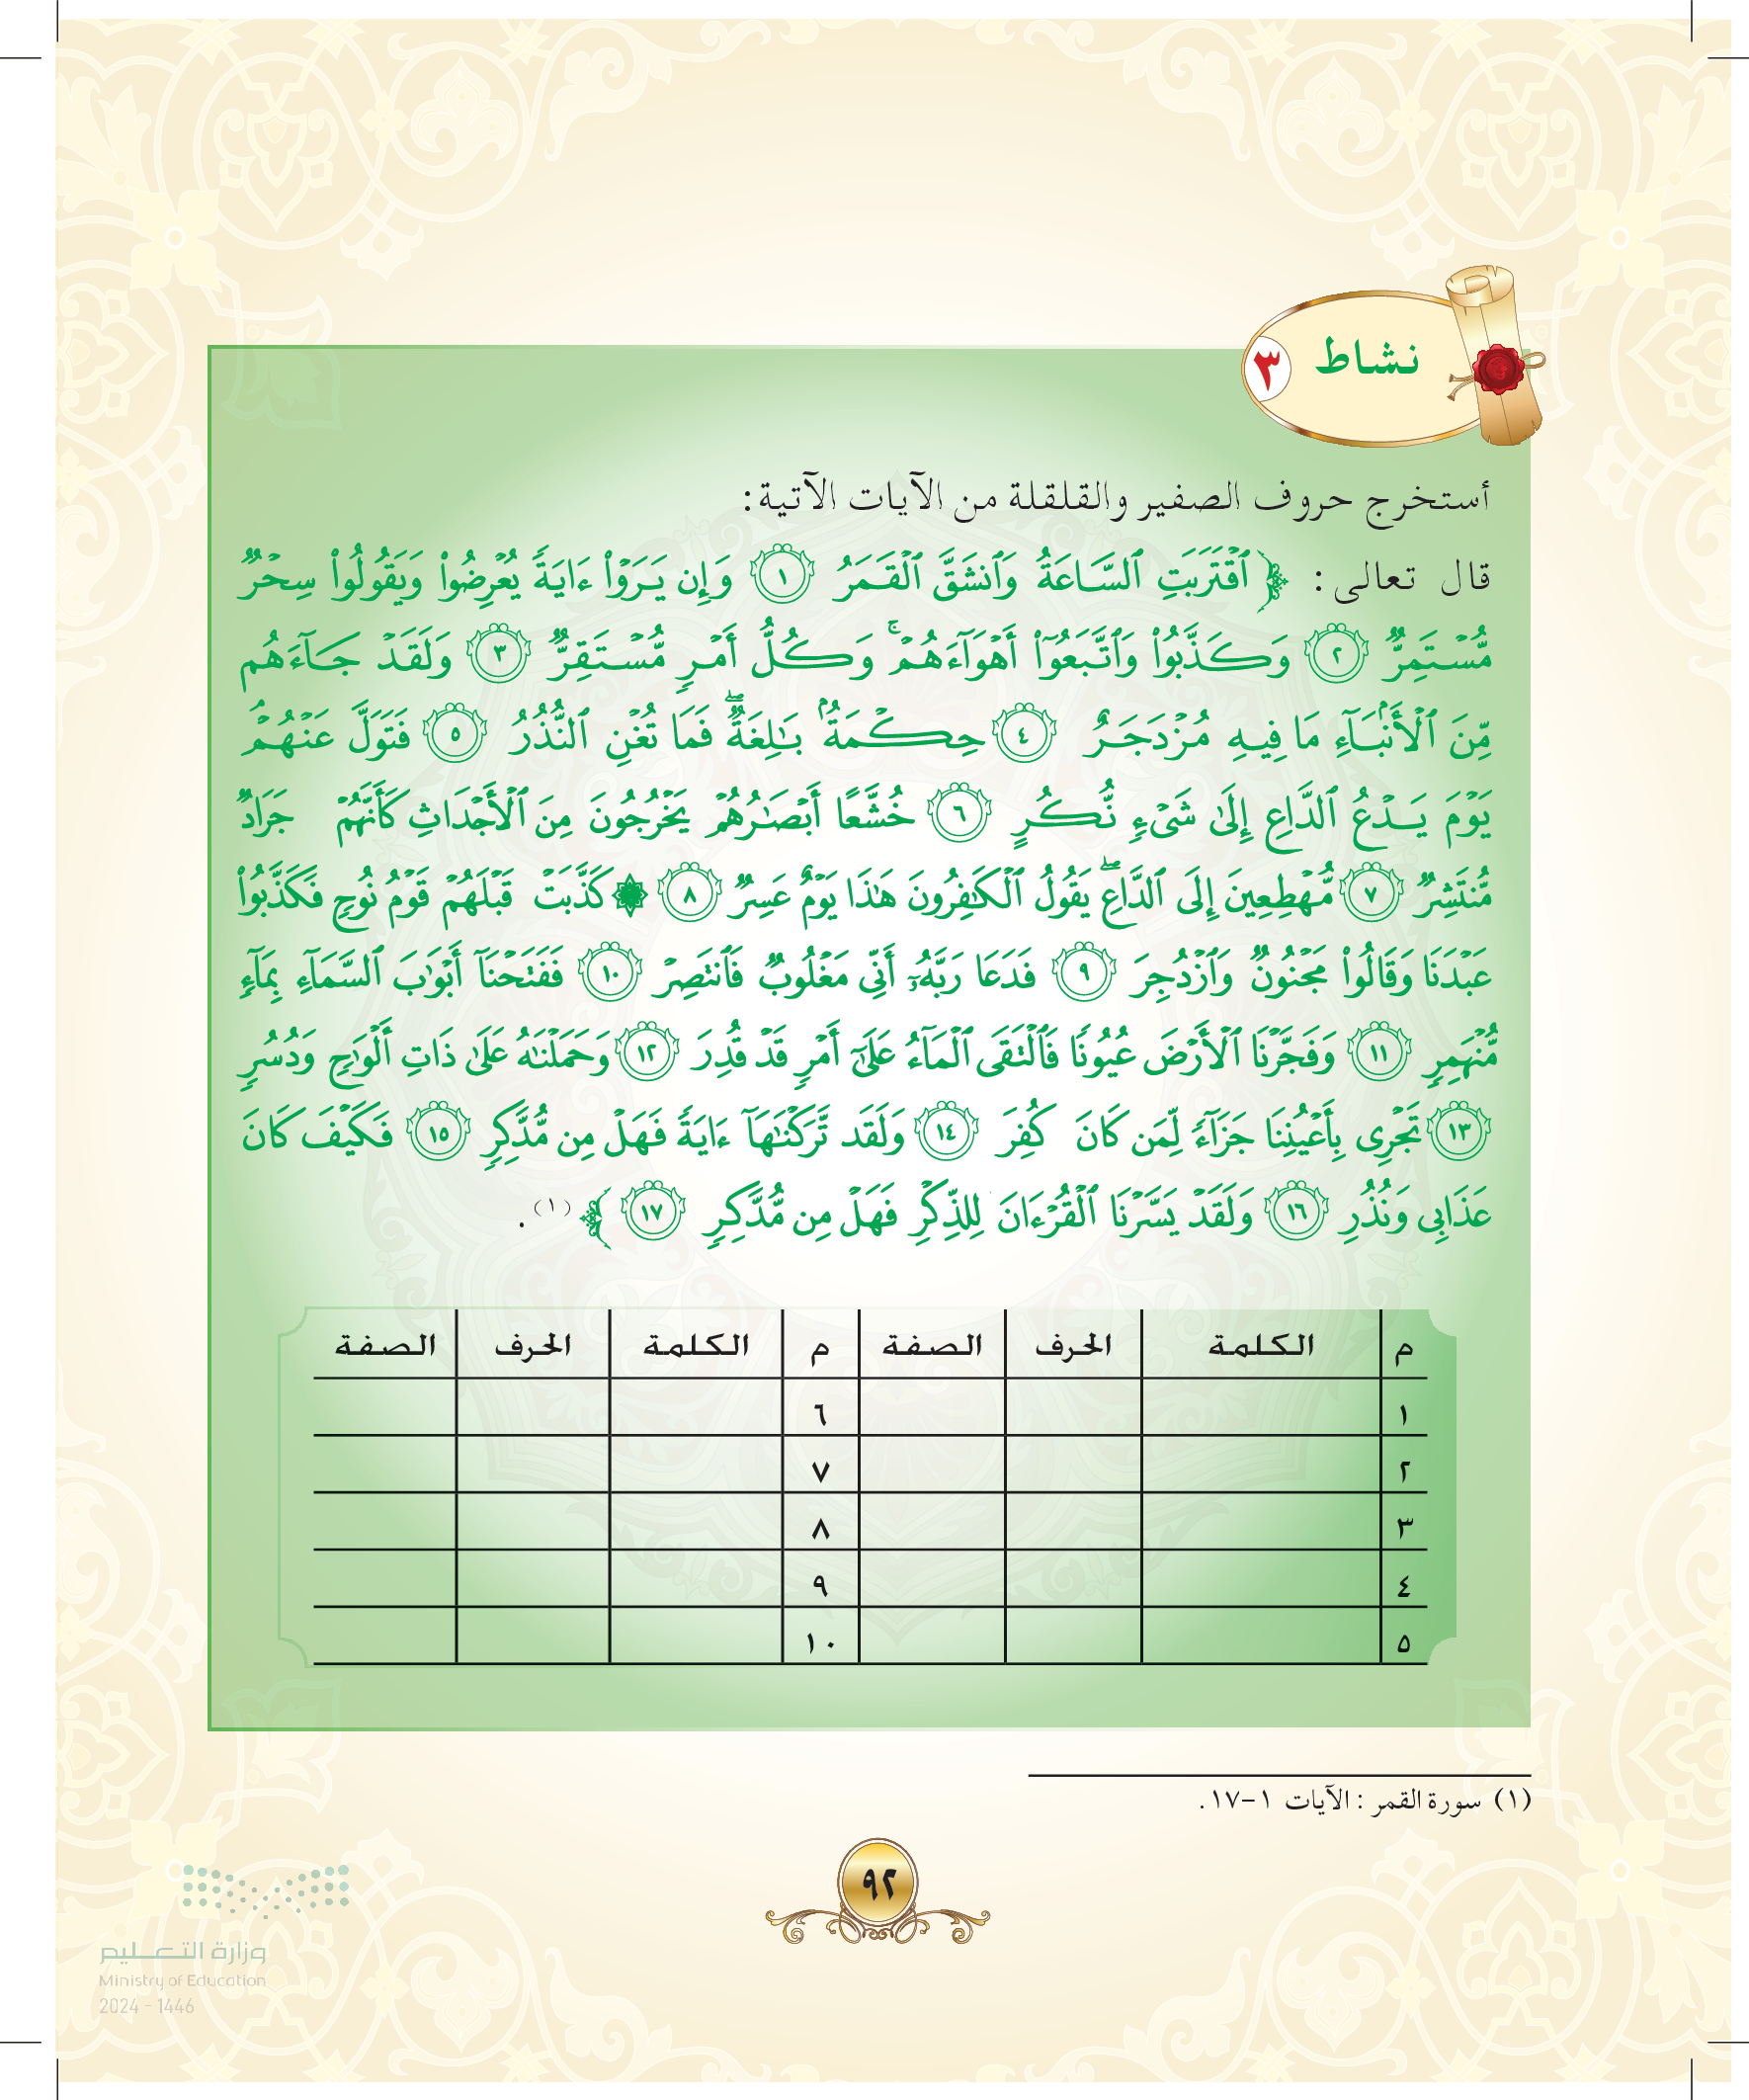 نشاط ٣
أستخرج حروف الصفير والقلقلة من الآيات الآتية:
قال تعالى: ﴿ ٱقۡتَرَبَتِ ٱلسَّاعَةُ وَٱنشَقَّ ٱلۡقَمَرُ ١ وَإِن يَرَوۡاْ ءَايَةٗ يُعۡرِضُواْ وَيَقُولُواْ سِحۡرٞ
مُّسۡتَمِرّٞ ٢ وَكَذَّبُواْ وَٱتَّبَعُوٓاْ أَهۡوَآءَهُمۡۚ وَكُلُّ أَمۡرٖ مُّسۡتَقِرّٞ ٣ وَلَقَدۡ جَآءَهُم
مِّنَ ٱلۡأَنۢبَآءِ مَا فِيهِ مُزۡدَجَرٌ ٤ حِكۡمَةُۢ بَٰلِغَةٞۖ فَمَا تُغۡنِ ٱلنُّذُرُ ٥ فَتَوَلَّ عَنۡهُمۡۘ
يَوۡمَ يَدۡعُ ٱلدَّاعِ إِلَىٰ شَيۡءٖ نُّكُرٍ ٦ خُشَّعًا أَبۡصَٰرُهُمۡ يَخۡرُجُونَ مِنَ ٱلۡأَجۡدَاثِ كَأَنَّهُمۡ جَرَادٞ
مُّنتَشِرٞ ٧ مُّهۡطِعِينَ إِلَى ٱلدَّاعِۖ يَقُولُ ٱلۡكَٰفِرُونَ هَٰذَا يَوۡمٌ عَسِرٞ ٨ ۞ كَذَّبَتۡ قَبۡلَهُمۡ قَوۡمُ نُوحٖ فَكَذَّبُواْ
عَبۡدَنَا وَقَالُواْ مَجۡنُونٞ وَٱزۡدُجِرَ ٩ فَدَعَا رَبَّهُۥٓ أَنِّي مَغۡلُوبٞ فَٱنتَصِرۡ ١٠ فَفَتَحۡنَآ أَبۡوَٰبَ ٱلسَّمَآءِ بِمَآءٖ
مُّنۡهَمِرٖ ١١ وَفَجَّرۡنَا ٱلۡأَرۡضَ عُيُونٗا فَٱلۡتَقَى ٱلۡمَآءُ عَلَىٰٓ أَمۡرٖ قَدۡ قُدِرَ ١٢ وَحَمَلۡنَٰهُ عَلَىٰ ذَاتِ أَلۡوَٰحٖ وَدُسُرٖ
١٣ تَجۡرِي بِأَعۡيُنِنَا جَزَآءٗ لِّمَن كَانَ كُفِرَ ١٤ وَلَقَد تَّرَكۡنَٰهَآ ءَايَةٗ فَهَلۡ مِن مُّدَّكِرٖ ١٥ فَكَيۡفَ كَانَ
عَذَابِي وَنُذُرِ ١٦ وَلَقَدۡ يَسَّرۡنَا ٱلۡقُرۡءَانَ لِلذِّكۡرِ فَهَلۡ مِن مُّدَّكِرٖ ١٧ ﴾ (١).
م الكلمة الحرف الصفة م الكلمة الحرف الصفة
١ ٦
٢ ٧
٣ ٨
٤ ٩
٥ ١٠
(١) سورة القمر : الآيات ١-١٧.
٩٢
وزارة التعليم
Ministry of Education
2024 - 1446